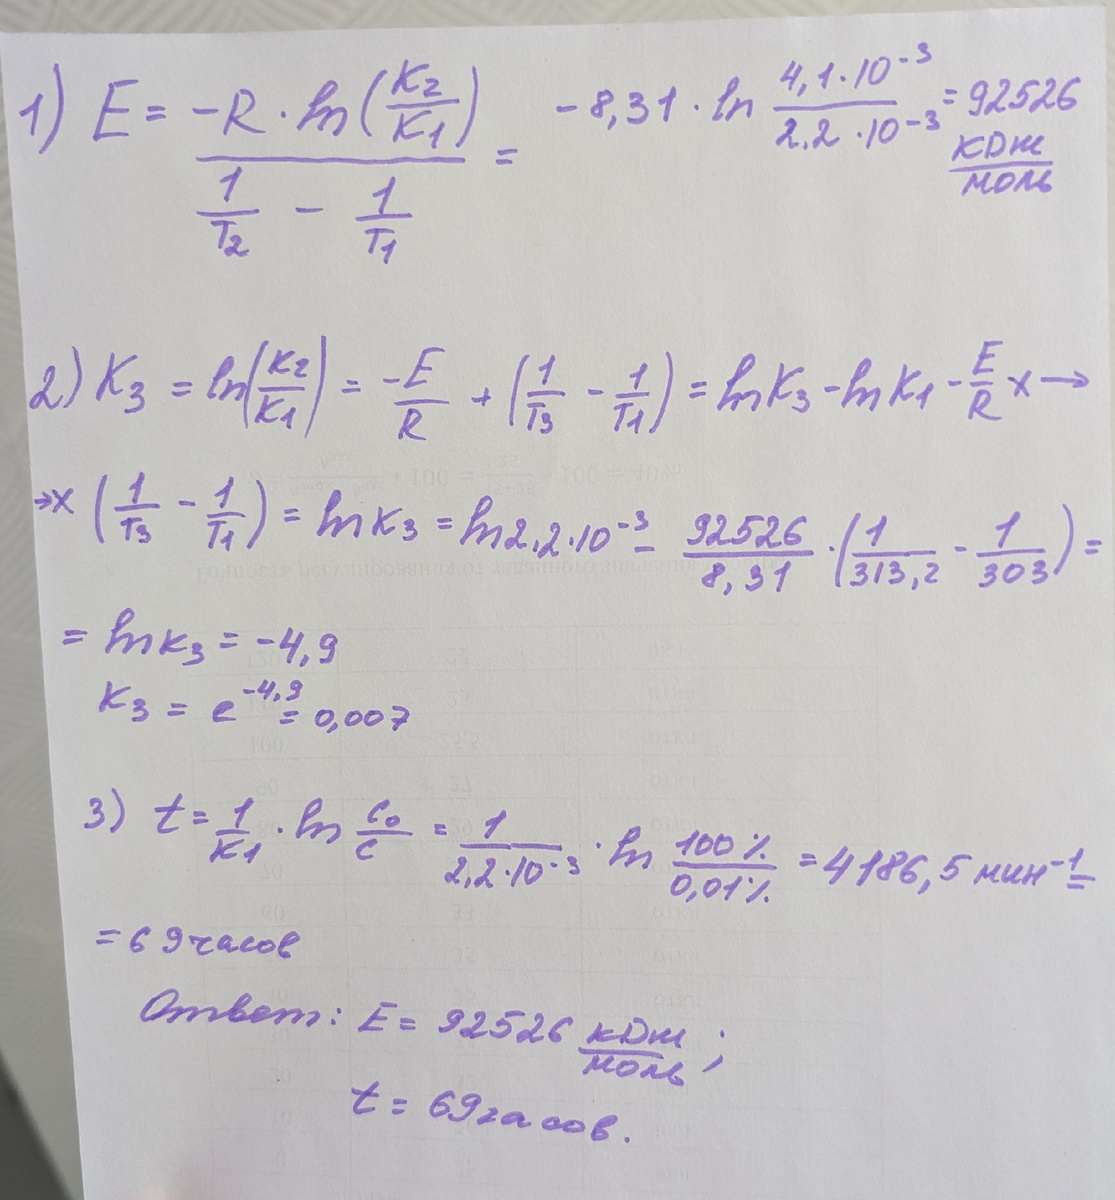 1) E = -R · ln(K2/K1) / (1/T2 - 1/T1) = -8,31 · ln 4,1·10⁻³/2.2·10⁻³ = 92526 кДж/моль
2) K3 = ln(K2/K1) = -E/R + (1/T3 - 1/T1) = ln K3 - ln K1 - E/R x →
→ x (1/T3 - 1/T1) = ln K3 = ln 2.2·10⁻³ - 92526/8,31 · (1/313,2 - 1/303) =
= ln K3 = -4,9
K3 = e^-4,9 = 0,007
3) t = 1/K1 · ln C0/C = 1/2,2·10⁻³ · ln 100%/0,01% = 4186,5 мин⁻¹ =
= 69 часов
Ответ: E = 92526 кДж/моль ;
t = 69 часов.